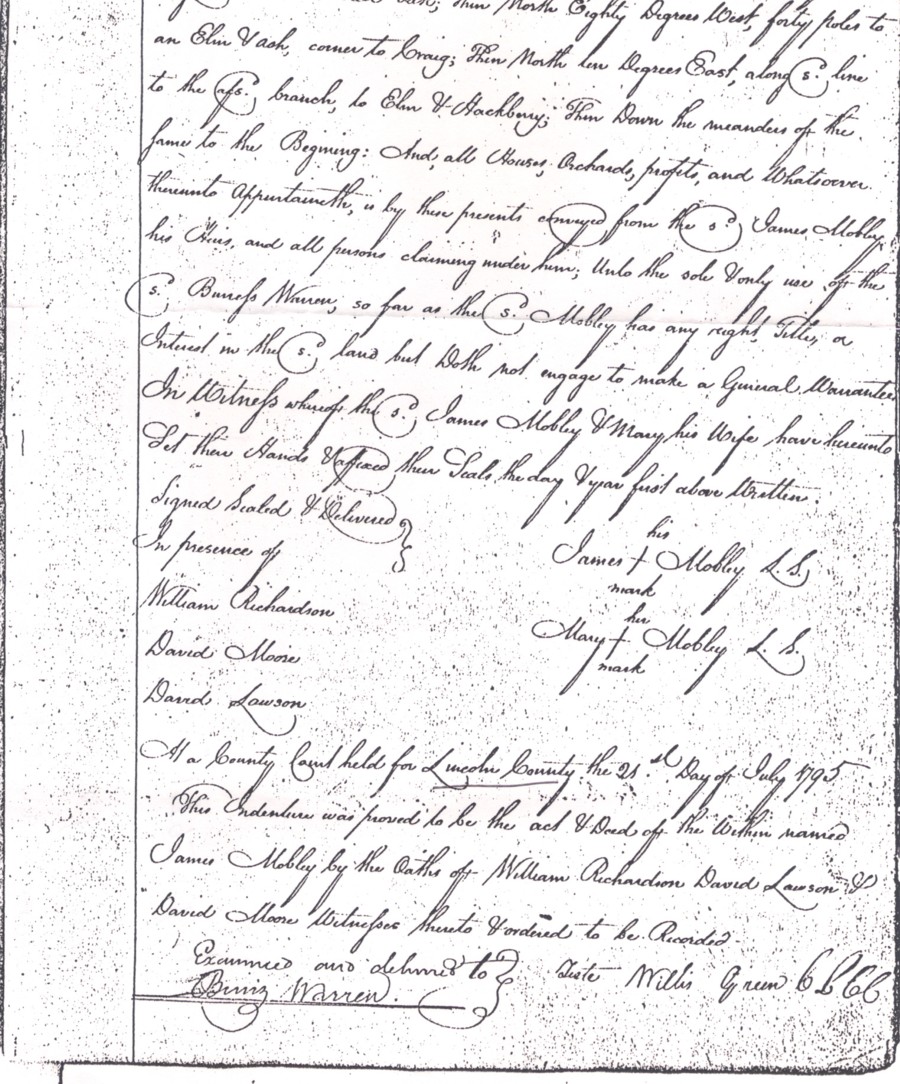 Then North Eighty Degrees West, forty poles to
an Elm & ash, corner to Craig; Then North ten Degrees East, along sd. line
to the afsd. branch, to Elm & Hackberry; Then Down the meanders of the
same to the Begining: And, all Houses, Orchards, profits, and Whatsoever
thereunto Appurtaineth, is by these presents conveyed from the sd. James Mobley,
his Heirs, and all persons claiming under him; Unto the sole & only use of the
sd. Burress Warren, so far as the sd. Mobley has any right, Title, or
Interest in the sd. land but Doth not engage to make a General Warrantee
In Witness whereof the sd. James Mobley & Mary his Wife have hereunto
Set their Hands & affixed their Seals, the day & year first above Written.
Signed Sealed & Delivered
In presence of
his
James + Mobley L.S.
mark
William Richardson
her
Mary + Mobley L.S.
mark
David Moore
David Lawson
At a County Court held for Lincoln County the 21.st Day of July 1795
This Indenture was proved to be the act & Deed of the Within named
James Mobley by the Oaths of William Richardson David Lawson &
David Moore Witnesses thereto & ordered to be Recorded
Examined and delivered to
Teste Willis Green C L C C
Warren.